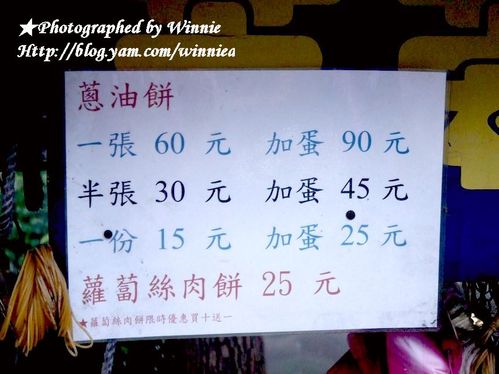 ★Photographed by Winnie
Http://blog.yam.com/winniea
蔥油餅
一張 60 元 加蛋 90 元
半張 30 元 加蛋 45 元
一份 15 元 加蛋 25 元
蘿蔔絲肉餅 25 元
★蘿蔔絲肉餅限時優惠買十送一